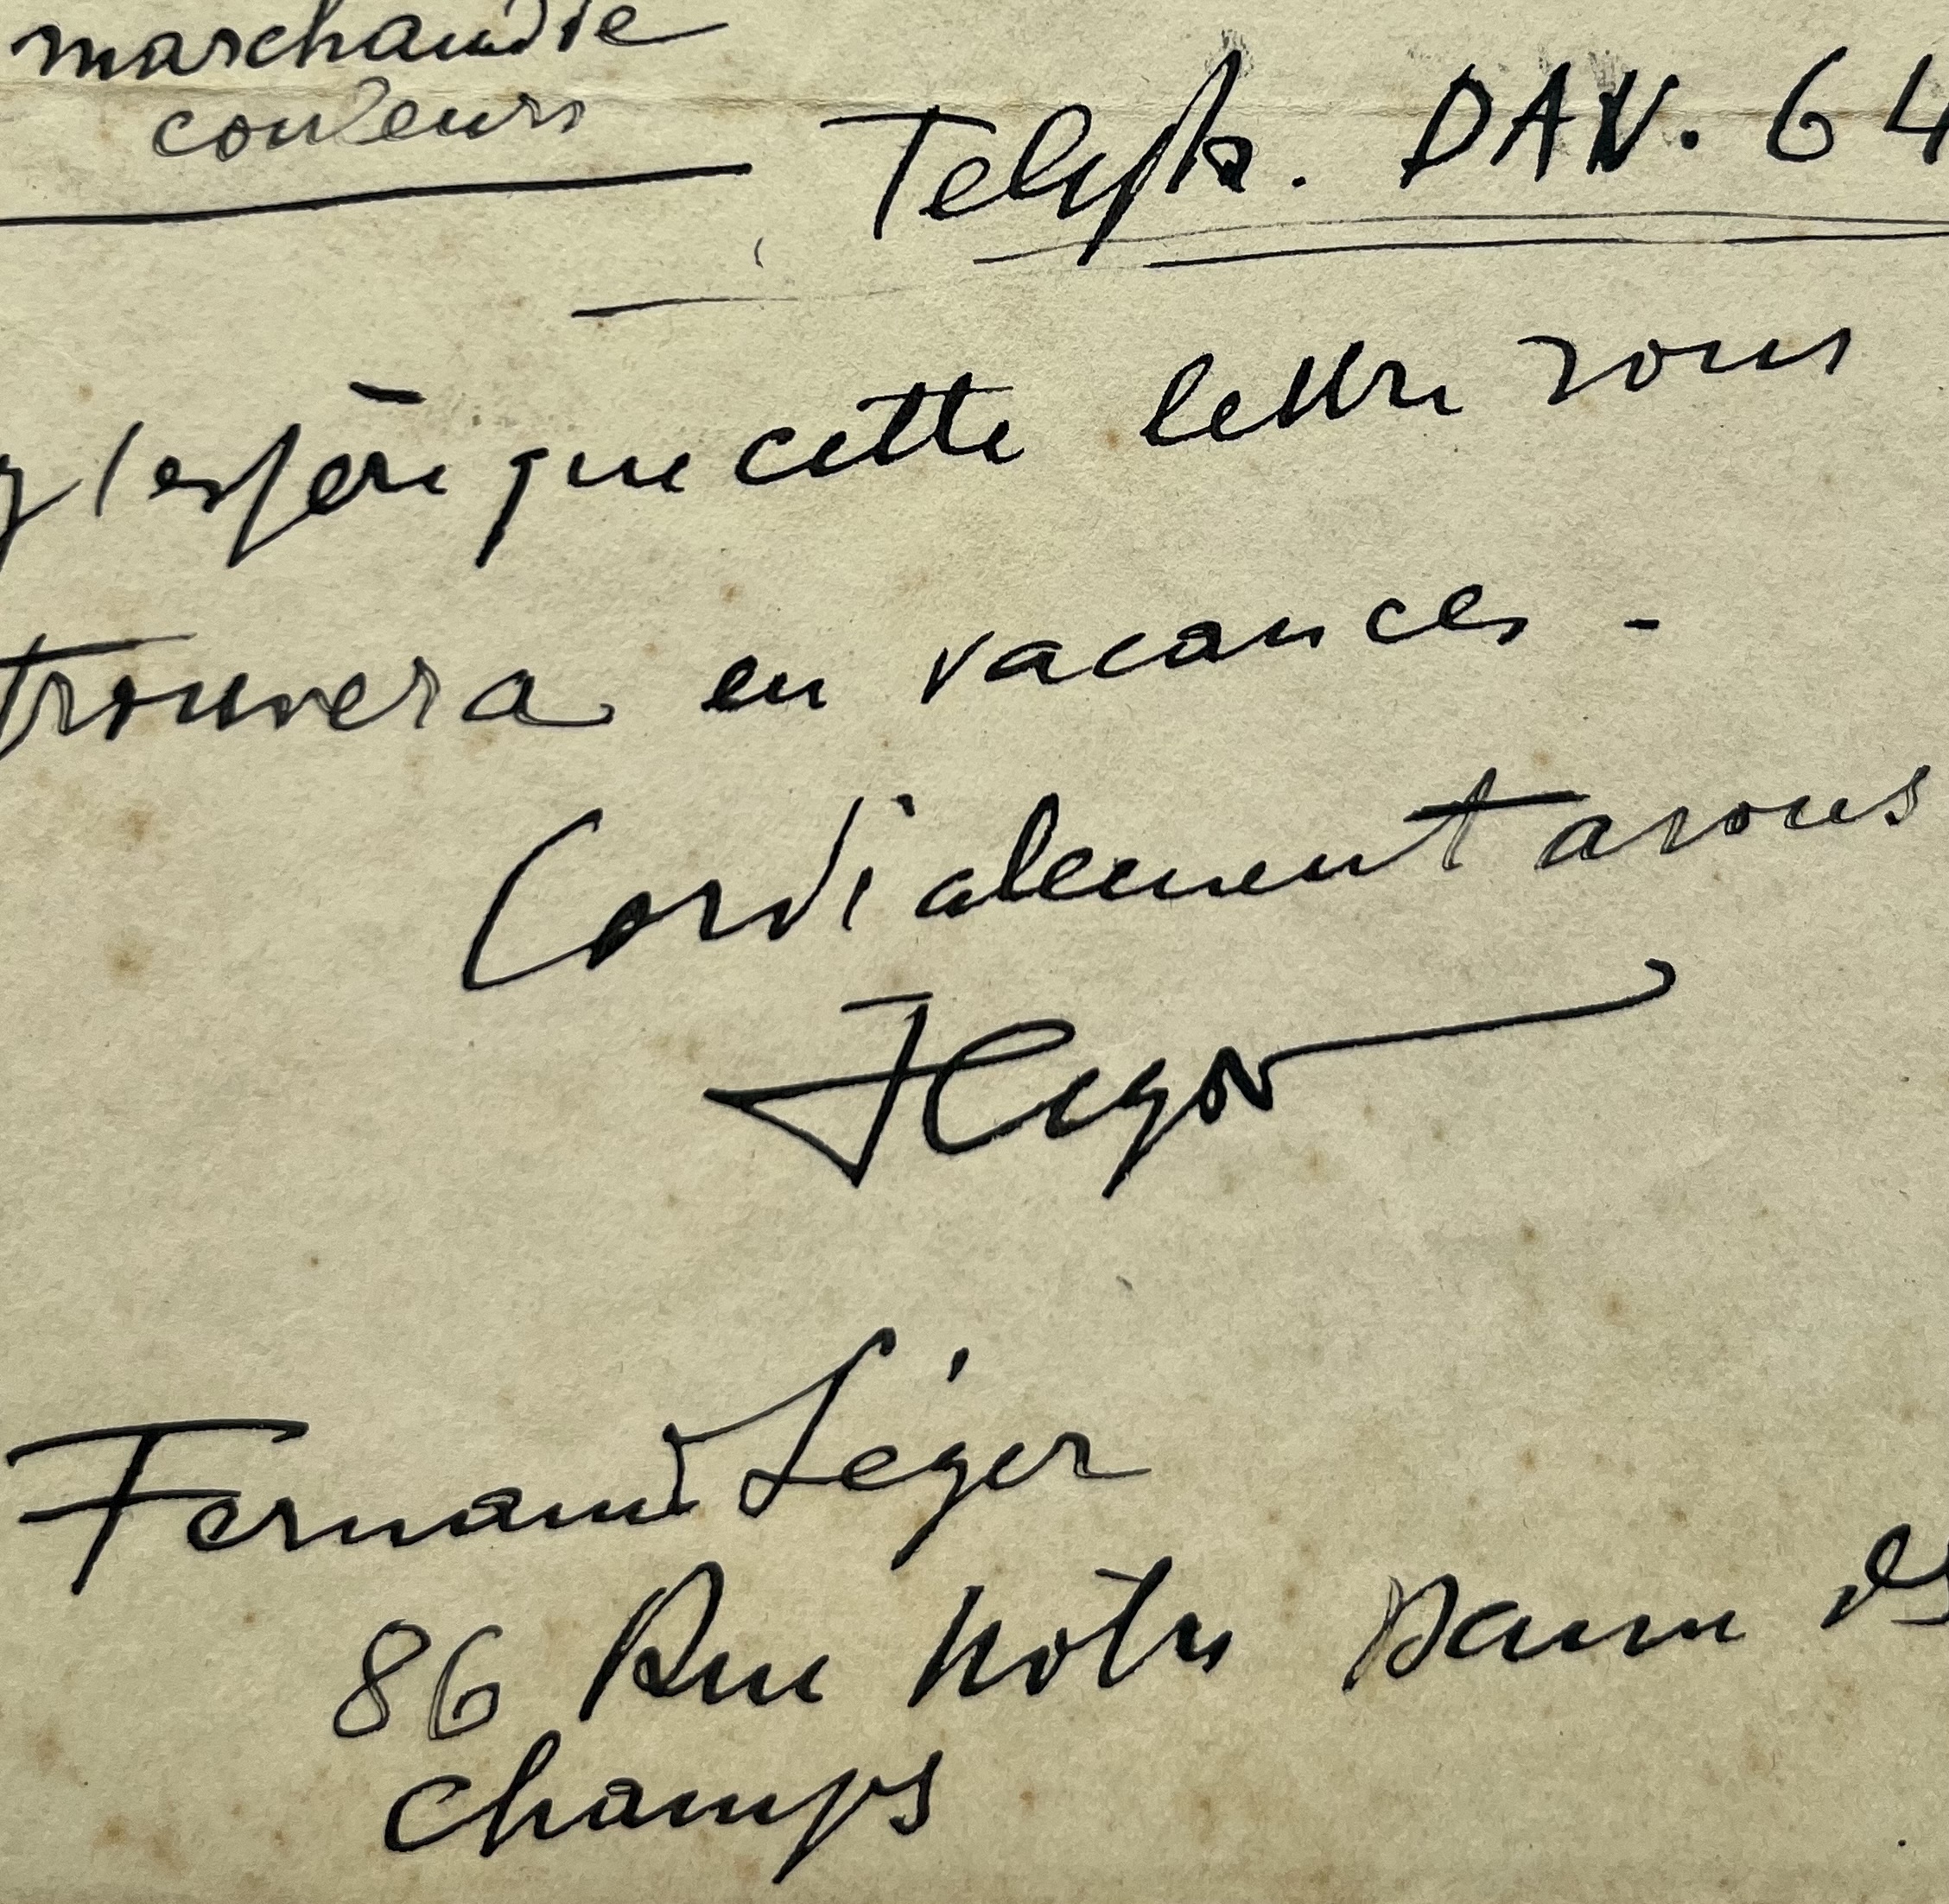 marchand de
couleurs
Teleph. DAN. 64
J'espère que cette lettre vous
trouvera en vacances -
Cordialement a vous
FLeger
Fernand Léger
86 Rue Notre Dame des
champs